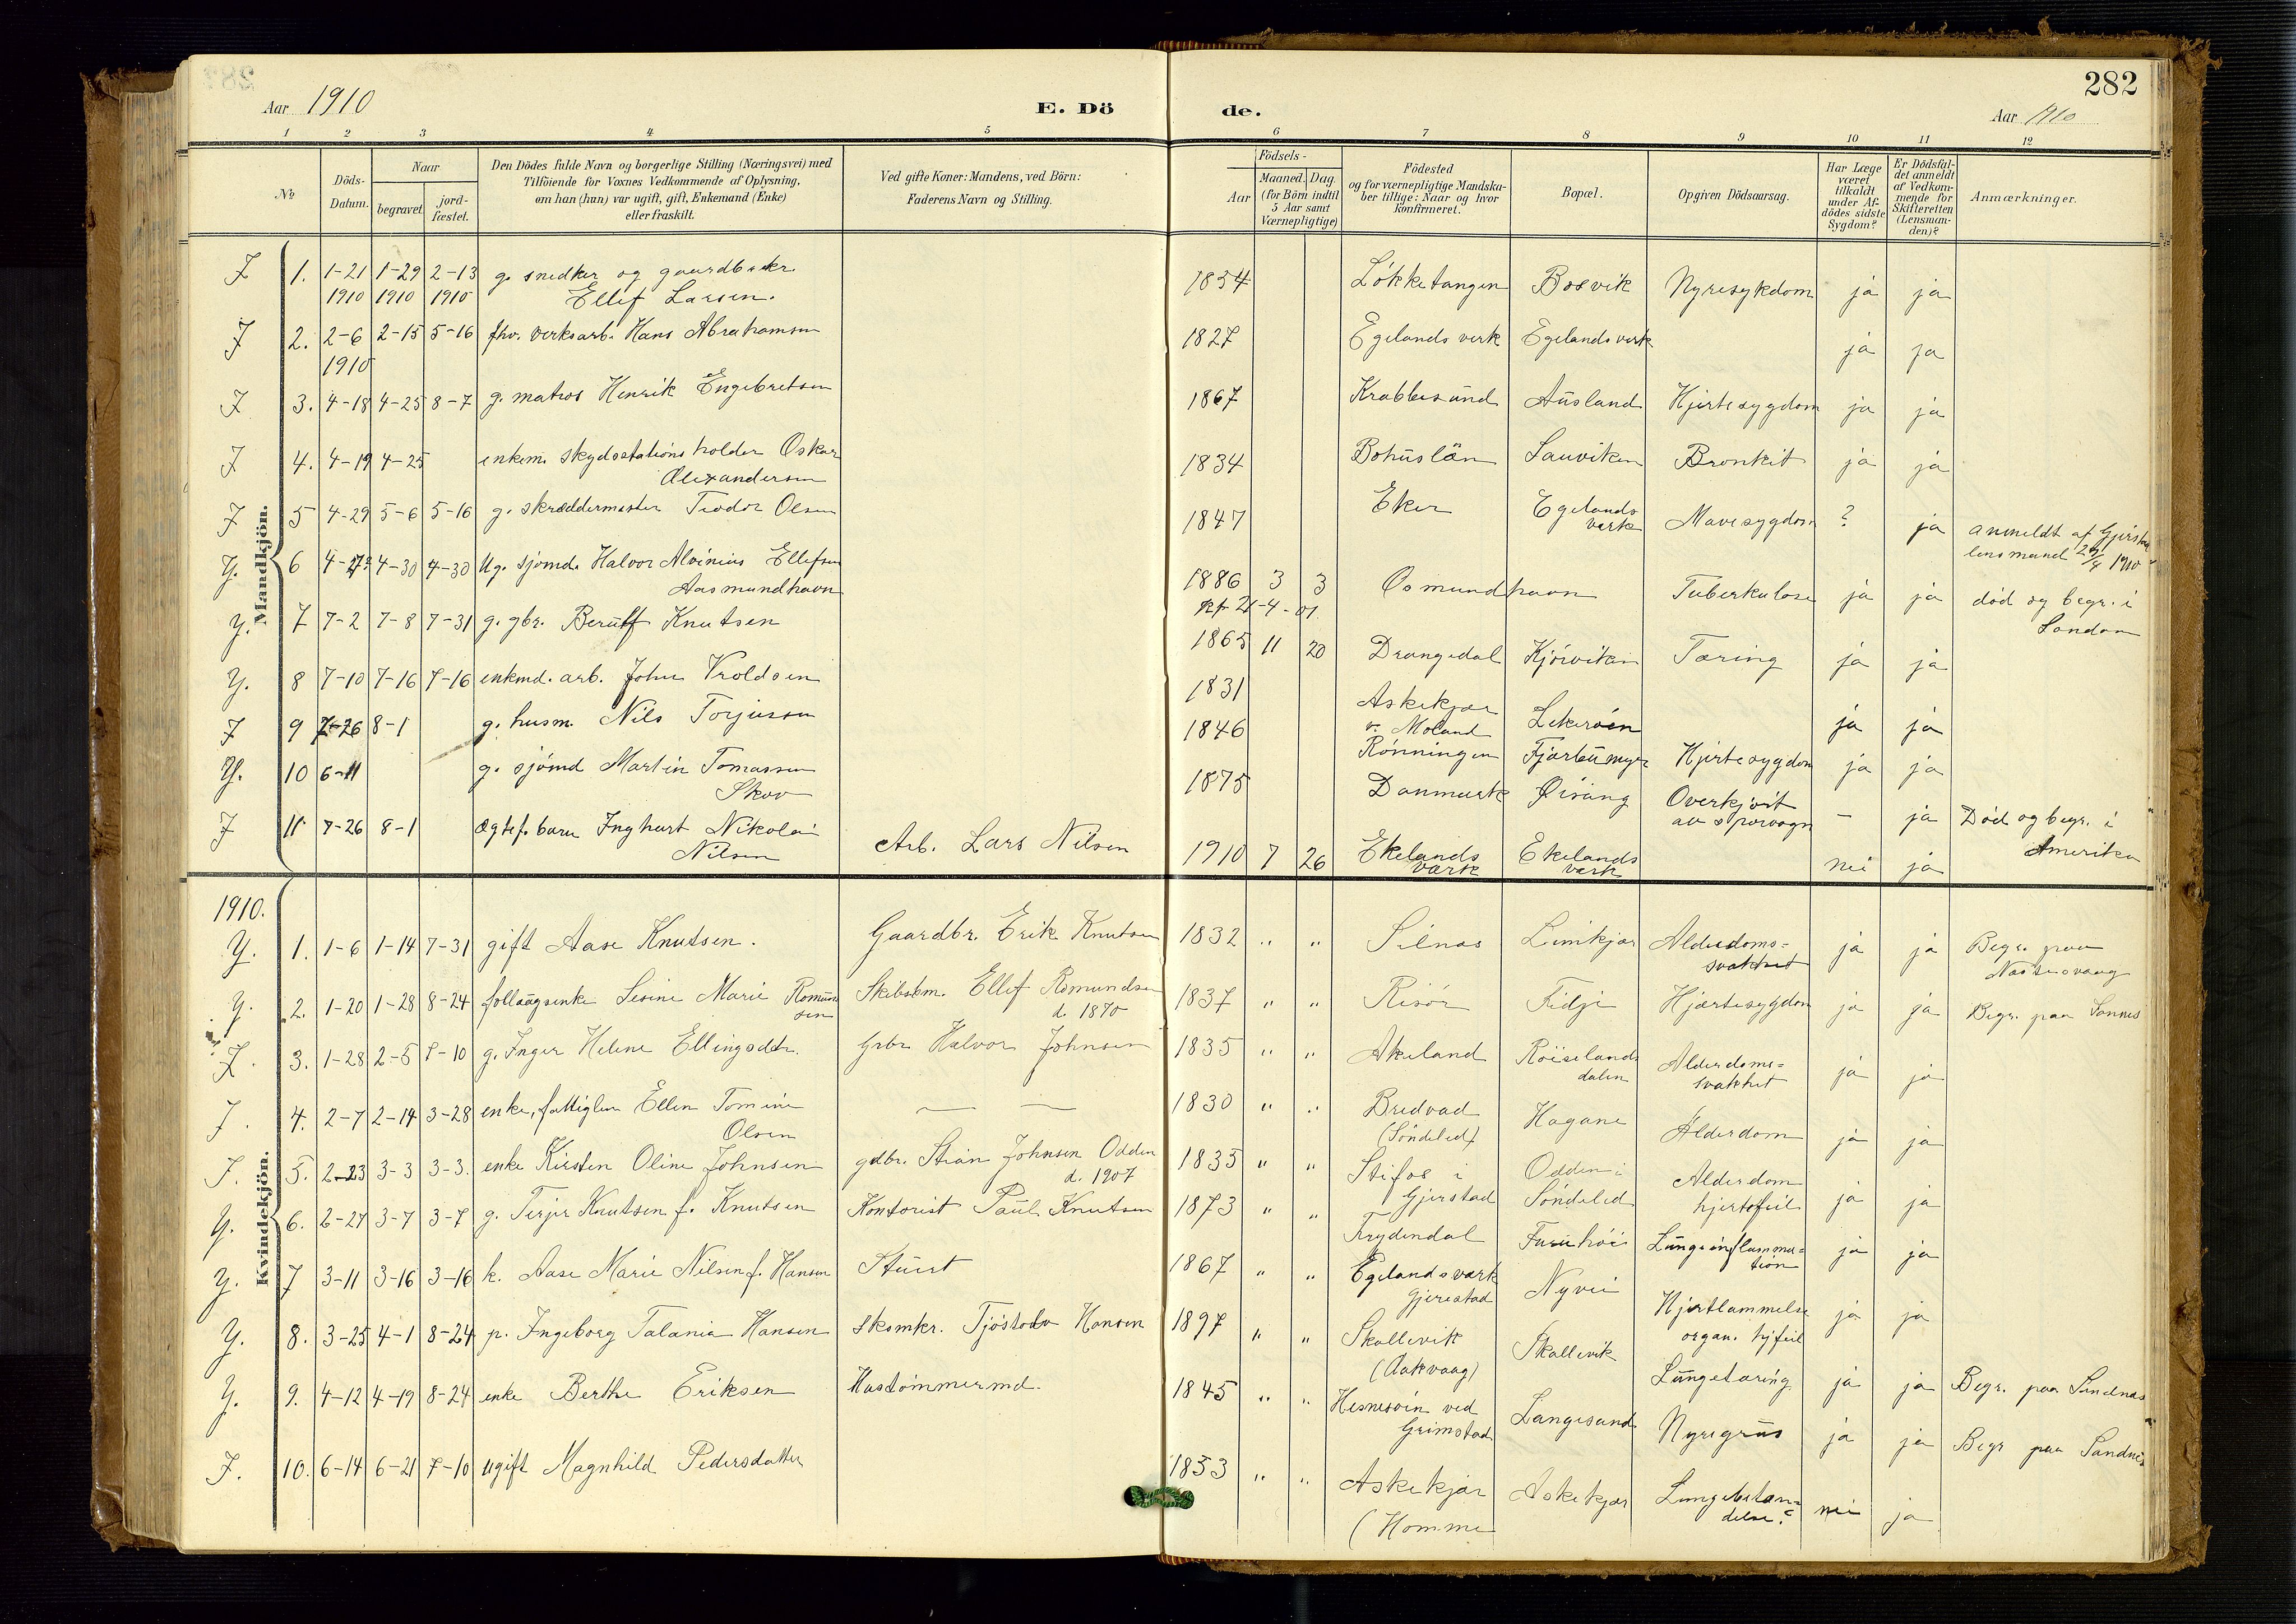 282
Aar 1910
E. Dö
de.
Aar 1910
1 2 3 4 5 6 7 8 9 10 11 12
No
Döds-Datum.
Naar
begravet.
jord-fæstet.
Den Dödes fulde Navn og borgerlige Stilling (Næringsvei) med
Tilföiende for Voxnes Vedkommende af Oplysning,
om han (hun) var ugift, gift, Enkemand (Enke)
eller fraskilt.
Ved gifte Koner: Mandens, ved Börn:
Faderens Navn og Stilling.
Födsels-
Aar
Maaned. Dag.
(for Börn indtil
5 Aar samt
Værnepligtige)
Födested
og for værnepligtige Mandska-
ber tillige: Naar og hvor
konfirmeret.
Bopæl.
Opgiven Dödsaarsag.
Har Læge
været
tilkaldt
under Af-
dödes sidste
Sygdom?
Er Dödsfal-
det anmeldt
af Vedkom-
mende for
Skifteretten
(Lensman-
den)?
Anmærkninger.
Mandkjön.
J 1. 1-21 1-29 2-13 g. snedker og gaardbruker 1834 Lökketangen Bosvik Nyresykdom ja ja
1910 1910 1910 Ellef Larsen.
J 2. 2-6 2-15 5-16 fhv. verksarb. Hans Abrahamsen 1827 Egelands verk Egelands verk ja ja
1910
J 3. 4-18 4-25 8-7 g. matros Henrik Engebretsen 1867 Krabbesund Ausland Hjertesygdom ja ja
J 4. 4-19 4-25 enkem. skydsstationsholder Oskar 1834 Bohuslän Sauviken Bronkit ja ja
Alexandersen
J 5 4-29 5-6 5-16 g. skræddermester Teodor Olsen 1847 Eker Egelands Mavesygdom ? ja anmeldt af Gjerstad
verk lensmand 29/4 1910
Y. 6 4-27 4-30 4-30 Ug. sjömd. Halvor Alvinius Ellefsen 1886 3 3 Osmundhavn Tuberkulose ja ja död og begr. i
Aasmundhavn kf. 21-4-01. London
Y. 7 7-2 7-8 7-31 g. gbr. Berulf Knutsen 1865 11 20 Drangedal Kjörviken Tæring ja ja
Y. 8 7-10 7-16 7-16 enkmd. arb. John Vroldsen 1831 Askekjær Lekeröen ja ja
v. Moland
J 9 7-26 8-1 g. husm. Nils Torjusson 1846 Rönningen Fjærbumyr Hjertesygdom ja ja
Y. 10 6-11 g. sjömd Martin Tomassen 1875 Danmark Öisang Overkjört — ja Död og begr. i
Skov av sporvogn Amerika
J 11 7-26 8-1 Ægtef. barn Inghart Nikolai Arb. Lars Nilsen 1910 7 26 Ekelands Ekelands nei ja
Nilsen værk værk
1910.
Kvindekjön.
Y. 1. 1-6 1-14 7-31 gift Aase Knutsen. Gaardbr. Erik Knutsen 1832 " " Silnæs Limkjær Alderdoms- ja ja Begr. paa
svakhet Næsersvaag
Y. 2. 1-20 1-28 8-24 follaugsenke Sesine Marie Romun Skibstm. Ellef Romundsen 1837 " " Risör Fidje Hjærtesygdom ja ja Begr. paa Sannes
sen d. 1870
J. 3. 1-28 2-5 7-10 g. Inger Helene Ellingsdtr. Grbr Halvor Johnsen 1835 " " Akeland Röiselands Alderdoms- ja ja
dalen svakhet
J. 4. 2-7 2-14 3-28 enke, fattiglem Ellen Tomine — — 1830 " " Bredvad Hagane Alderdom ja ja
Olsen (Söndeled)
J. 5. 2-23 3-3 3-3. enke Kirsten Oline Johnsen gdbr. Stian Johnsen Odden 1835 " " Stifos i Odden i Alderdom ja ja
d. 1907 Gjerstad Söndeled hjertefeil
Y. 6. 2-27 3-7 3-7 g. Terjer Knutsen f. Knutsen Kontorist Paul Knutsen 1873 " " Frydendal Furuhöi Lungeinflamma- ja ja
tion
Y. 7 3-11 3-16 3-16 k. Aase Marie Nilsen f. Hansen Stuert 1867 " " Egelands værk Nyvei Hjertlammelse ja ja
Gjerestad organ. hjfeil
Y. 8. 3-25 4-1 8-24 p. Ingeborg Talania Hansen skomkr. Tjöstolv Hansen 1897 " " Skallevik Skallevik Lungetæring ja ja Begr. paa Sandnæs
(Aakvaag)
Y. 9. 4-12 4-19 8-24 enke Berthe Eriksen Hustömmermd. 1845 " " Hesnesöin ved Langesund Nyregrus ja ja Begr paa Sandnes
Grimstad
J. 10. 6-14 6-21 7-10 ugift Magnhild Pedersdatter 1853 " " Askekjær Askekjær Lungebetæn- nei ja
(Homme delse?